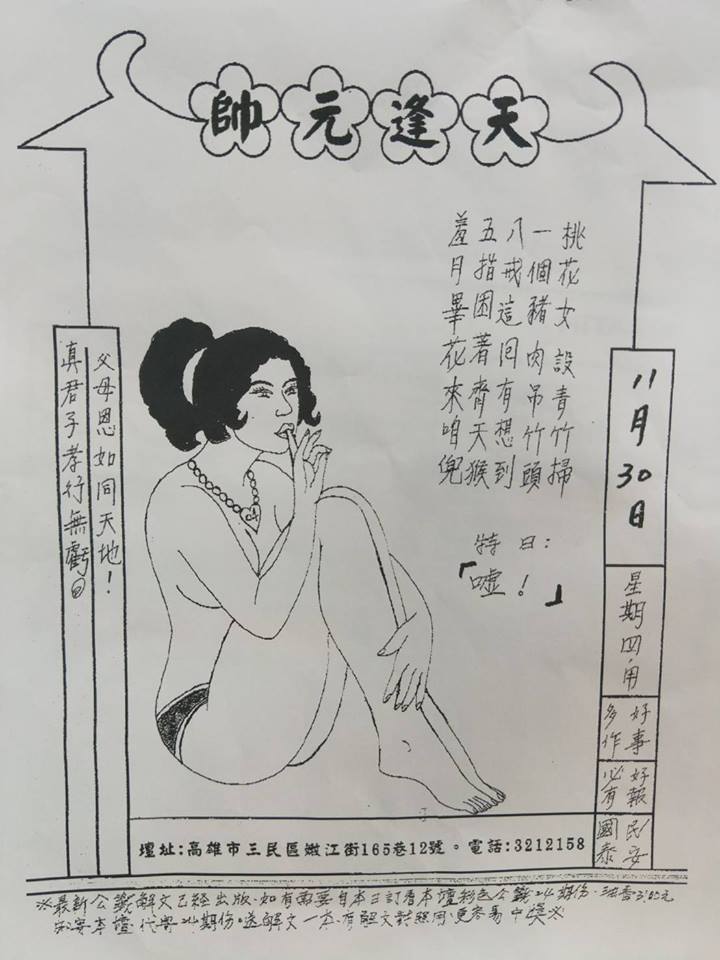 天逢元帥
桃花女設青竹掃
一個豬肉吊竹頭
八戒這回有想到
五指困著齊天猴
羞月畢花來咱兜
特曰:
「噓!」
11月30日
星期四用
好事多作
好報必有
民安國泰
父母恩如同天地!
真君子孝行無虧
壇址:高雄市三民區嫩江街165巷12號。電話:3212158
※最新公籤解文已經出版.如有需要自本三訂看本壇彩色公籤24期份.油香
本壇代寄24期份.送解文一本.有解文對照用.更容易中獎※